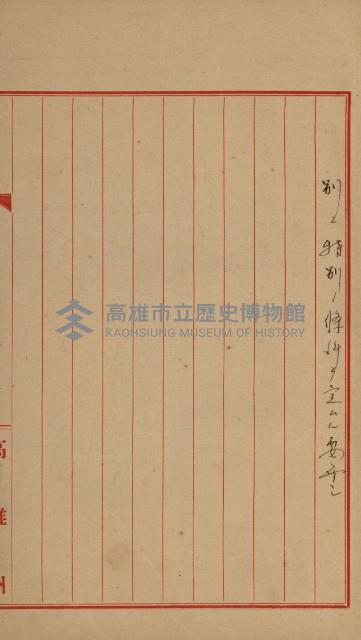 別ニ特別ノ條件ヲ定ムル要ナシ
高雄市立歷史博物館
KAOHSIUNG MUSEUM OF HISTORY
高雄州